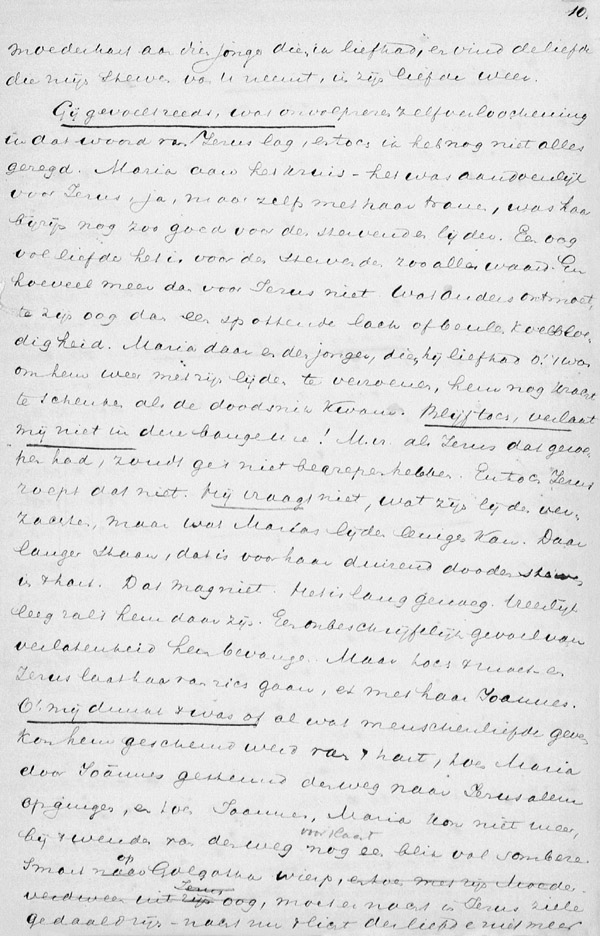 10.
moederhart aan dien jongen dien ik liefhad, en vind de liefde
die mijn sterven van U neemt, in zijn liefde weer.
Gij gevoelt reeds, wat onvolprezen zelfverloochening
in dat woord van Jezus lag, en toch is het nog niet alles
gezegd. Maria aan het kruis - het was aandoenlijk
voor Jezus, ja, maar zelf met haar trouw, was haar
bijzijn nog zoo goed voor den stervenden lijder. Een oog
vol liefde het is voor den stervende zoo alles waard. En
hoeveel meer dan voor Jezus niet. Wat anders ontmoet
zijn oog dan een spottende lach of beuls koelbloe-
digheid. Maria daar en den jonger, dien hij liefhad o! 't was
om hem weer met zijn lijden te verzoenen, hem nog kracht
te schenken als de doodsnik kwam. Blijf toch, verlaat
mij niet in deze bange ure! M. v. als Jezus dat geroe-
pen had, zoudt ge 't niet begrepen hebben. En toch Jezus
roept dat niet. Hij vraagt niet, wat zijn lijden ver-
zachten, maar wat Marias lijden lenigen kan. Daar
langer staan, dat is voor haar duizend dooden
in 't hart. Dat mag niet. Het is lang genoeg. Vreeslijk
leeg zal 't hem daar zijn. Een onbeschrijfelijk gevoel van
verlatenheid hem bevangen. Maar toch 't moet en
Jezus laat haar van zich gaan, en met haar Joannes.
O! mij dunkt 't was of al wat menschenliefde geven
kon hem gescheurd werd van 't hart, toen Maria
door Joännes gesteund den weg naar Jerusalem
opgingen, en toen Joannes, Maria kon niet meer,
bij 't wenden van den weg voor 't laatst nog een blik vol sombere
smart op Golgotha wierp, en toen met zijn Moeder
verdween uit Jezus oog, moet er nacht in Jezus ziele
gedaald zijn - nacht nu 't licht der liefde niet meer